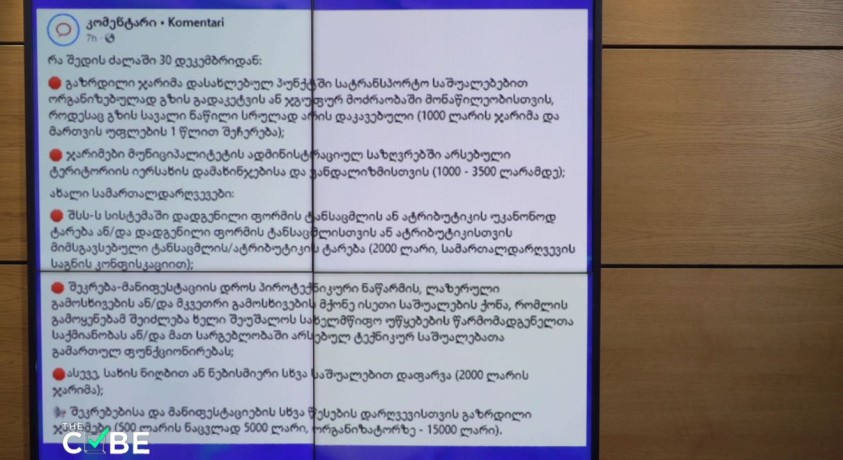 კომენტარი • Komentari
7h
რა შედის ძალაში 30 დეკემბრიდან:
გაზრდილი ჯარიმა დასახლებულ პუნქტში სატრანსპორტო საშუალებებით
ორგანიზებულად გზის გადაკეტვის ან ჯგუფურ მოძრაობაში მონაწილეობისთვის,
როდესაც გზის სავალი ნაწილი სრულად არის დაკავებული (1000 ლარის ჯარიმა და
მართვის უფლების 1 წლით შეჩერება);
ჯარიმები მუნიციპალიტეტის ადმინისტრაციულ საზღვრებში არსებული
ტერიტორიის იერსახის დამახინჯებისა და ვანდალიზმისთვის (1000 - 3500 ლარამდე);
ახალი სამართალდარღვევები:
შსს-ს სისტემაში დადგენილი ფორმის ტანსაცმლის ან ატრიბუტიკის უკანონოდ
ტარება ან/და დადგენილი ფორმის ტანსაცმლისთვის ან ატრიბუტიკისთვის
მიმსგავსებული ტანსაცმლის/ატრიბუტიკის ტარება (2000 ლარი, სამართალდარღვევის
საგნის კონფისკაციით);
შეკრება-მანიფესტაციის დროს პიროტექნიკური ნაწარმის, ლაზერული
გამოსხივების ან/და მკვეთრი გამოსხივების მქონე ისეთი საშუალების ქონა, რომლის
გამოყენებამ შეიძლება ხელი შეუშალოს სახელმწიფო უწყებების წარმომადგენელთა
საქმიანობას ან/და მათ სარგებლობაში არსებულ ტექნიკურ საშუალებათა
გამართულ ფუნქციონირებას;
ასევე, სახის ნიღბით ან ნებისმიერი სხვა საშუალებით დაფარვა (2000 ლარის
ჯარიმა);
შეკრებებისა და მანიფესტაციების სხვა წესების დარღვევისთვის გაზრდილი
ჯარიმები (500 ლარის ნაცვლად 5000 ლარი, ორგანიზატორზე - 15000 ლარი).
THE
CUBE